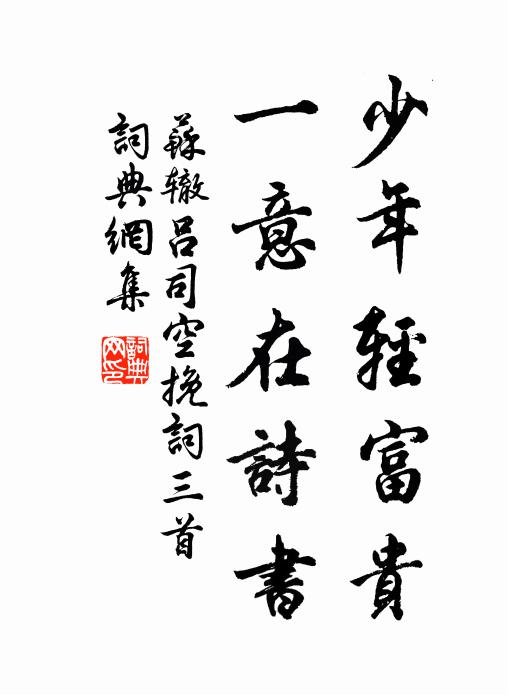 少年輕富貴
一意在詩書
蘇辙呂司空挽詞三首
詞典網集
詞典
网印